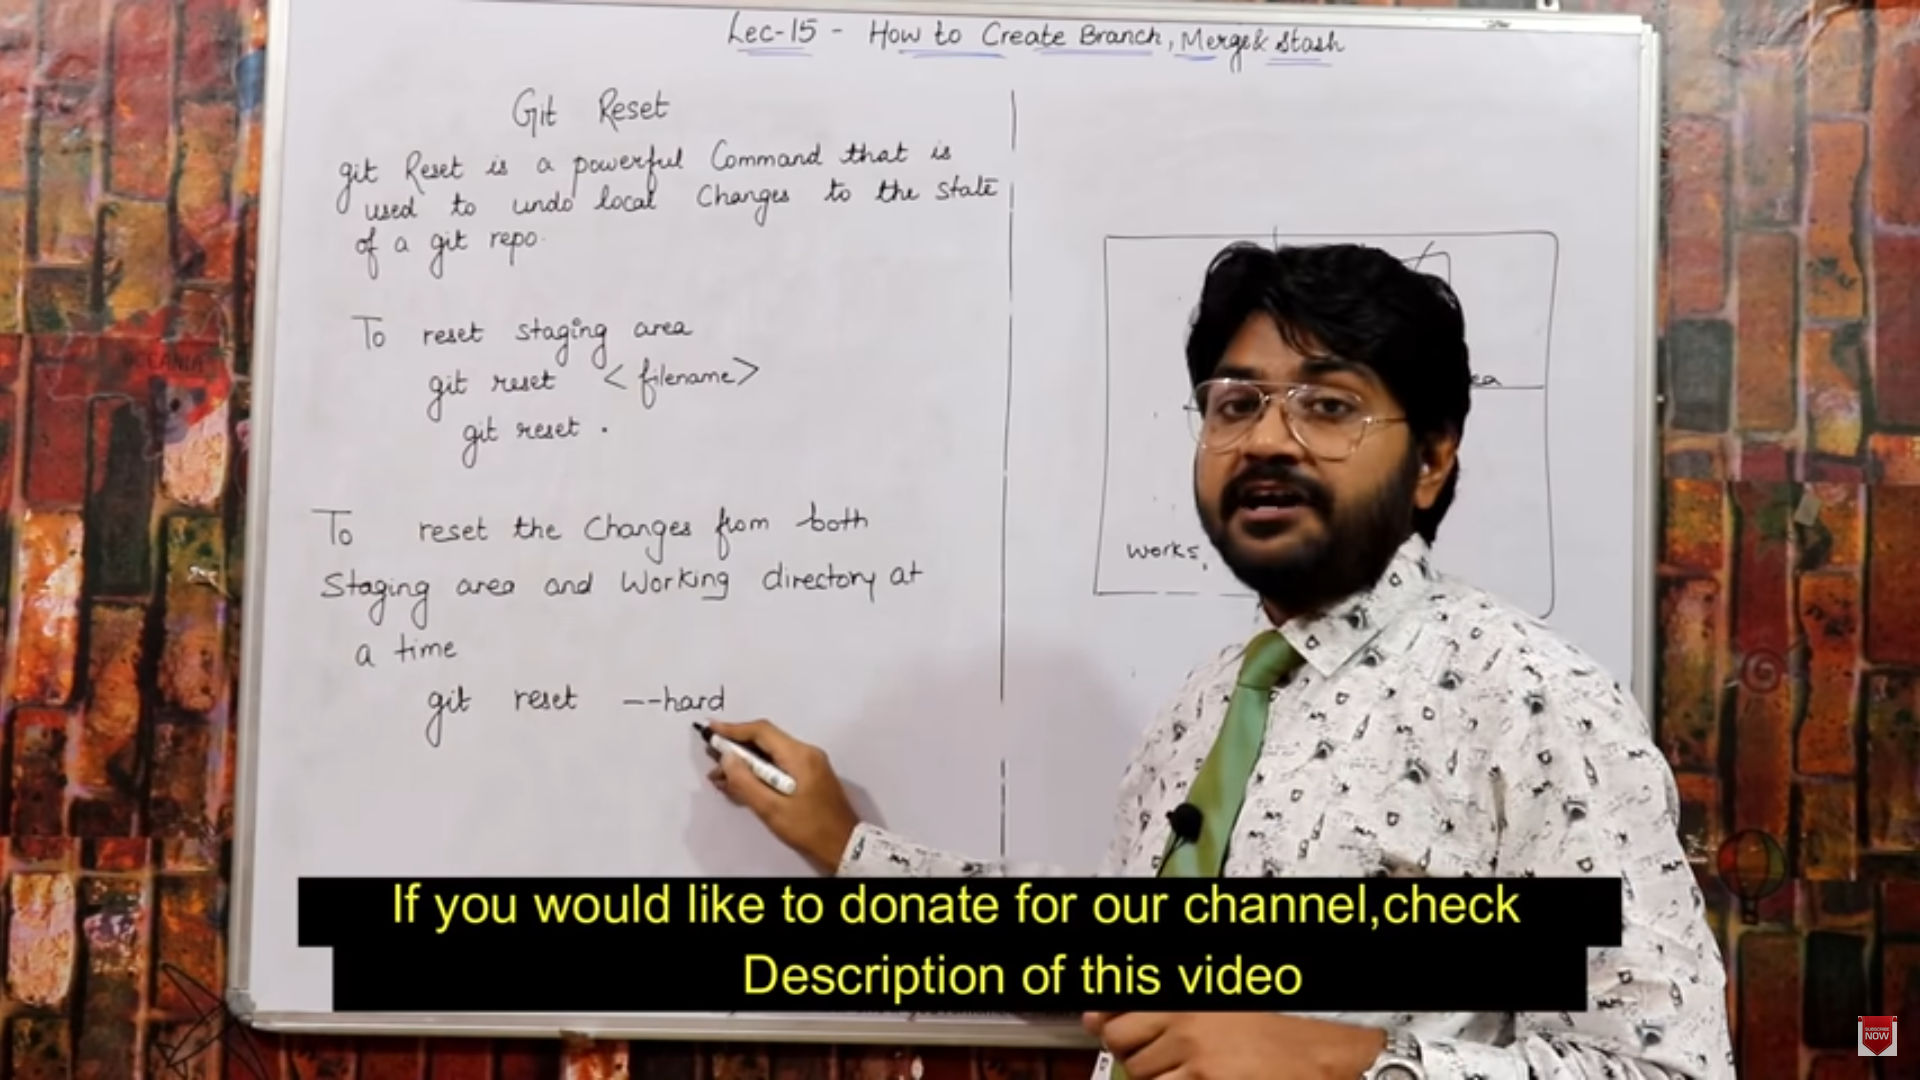 Lec-15 - How to Create Branch, Merge & Stash
Git Reset
git Reset is a powerful Command that is
used to undo local Changes to the state
of a git repo.
To reset staging area
git reset <filename>
git reset .
To reset the Changes from both
Staging area and Working directory at
a time
git reset --hard
ea
works
If you would like to donate for our channel,check
Description of this video
SUBSCRIBE
NOW
OCEANIA